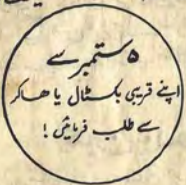 ۵ ستمبر سے
اپنے قریبی بکسٹال یا ھاکر
سے طلب فرمائیں !